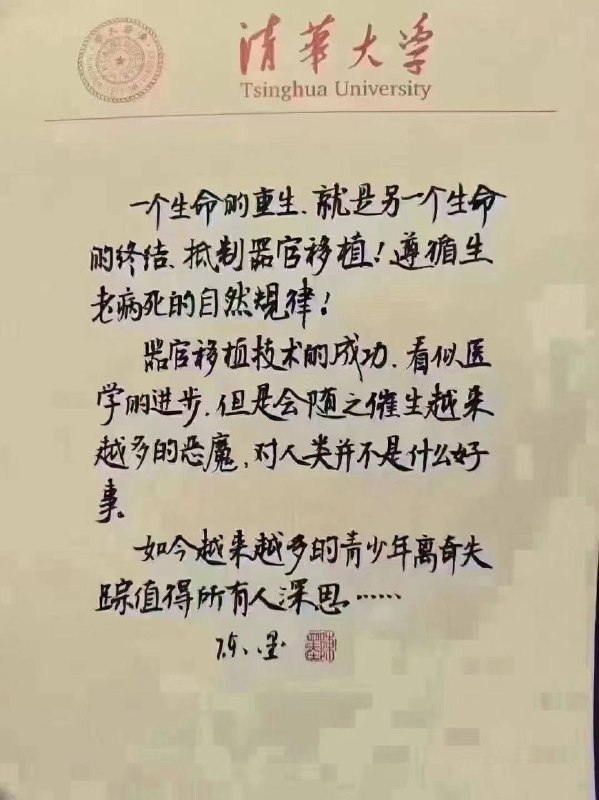 清華大学
Tsinghua University
一个生命的重生、就是另一个生命
的终结、抵制器官移植！遵循生
老病死的自然规律！
器官移植技术的成功、看似医
学的进步、但是会随之催生越来
越多的恶魔，对人类并不是什么好
事。
如今越来越多的青少年离奇失
踪值得所有人深思……